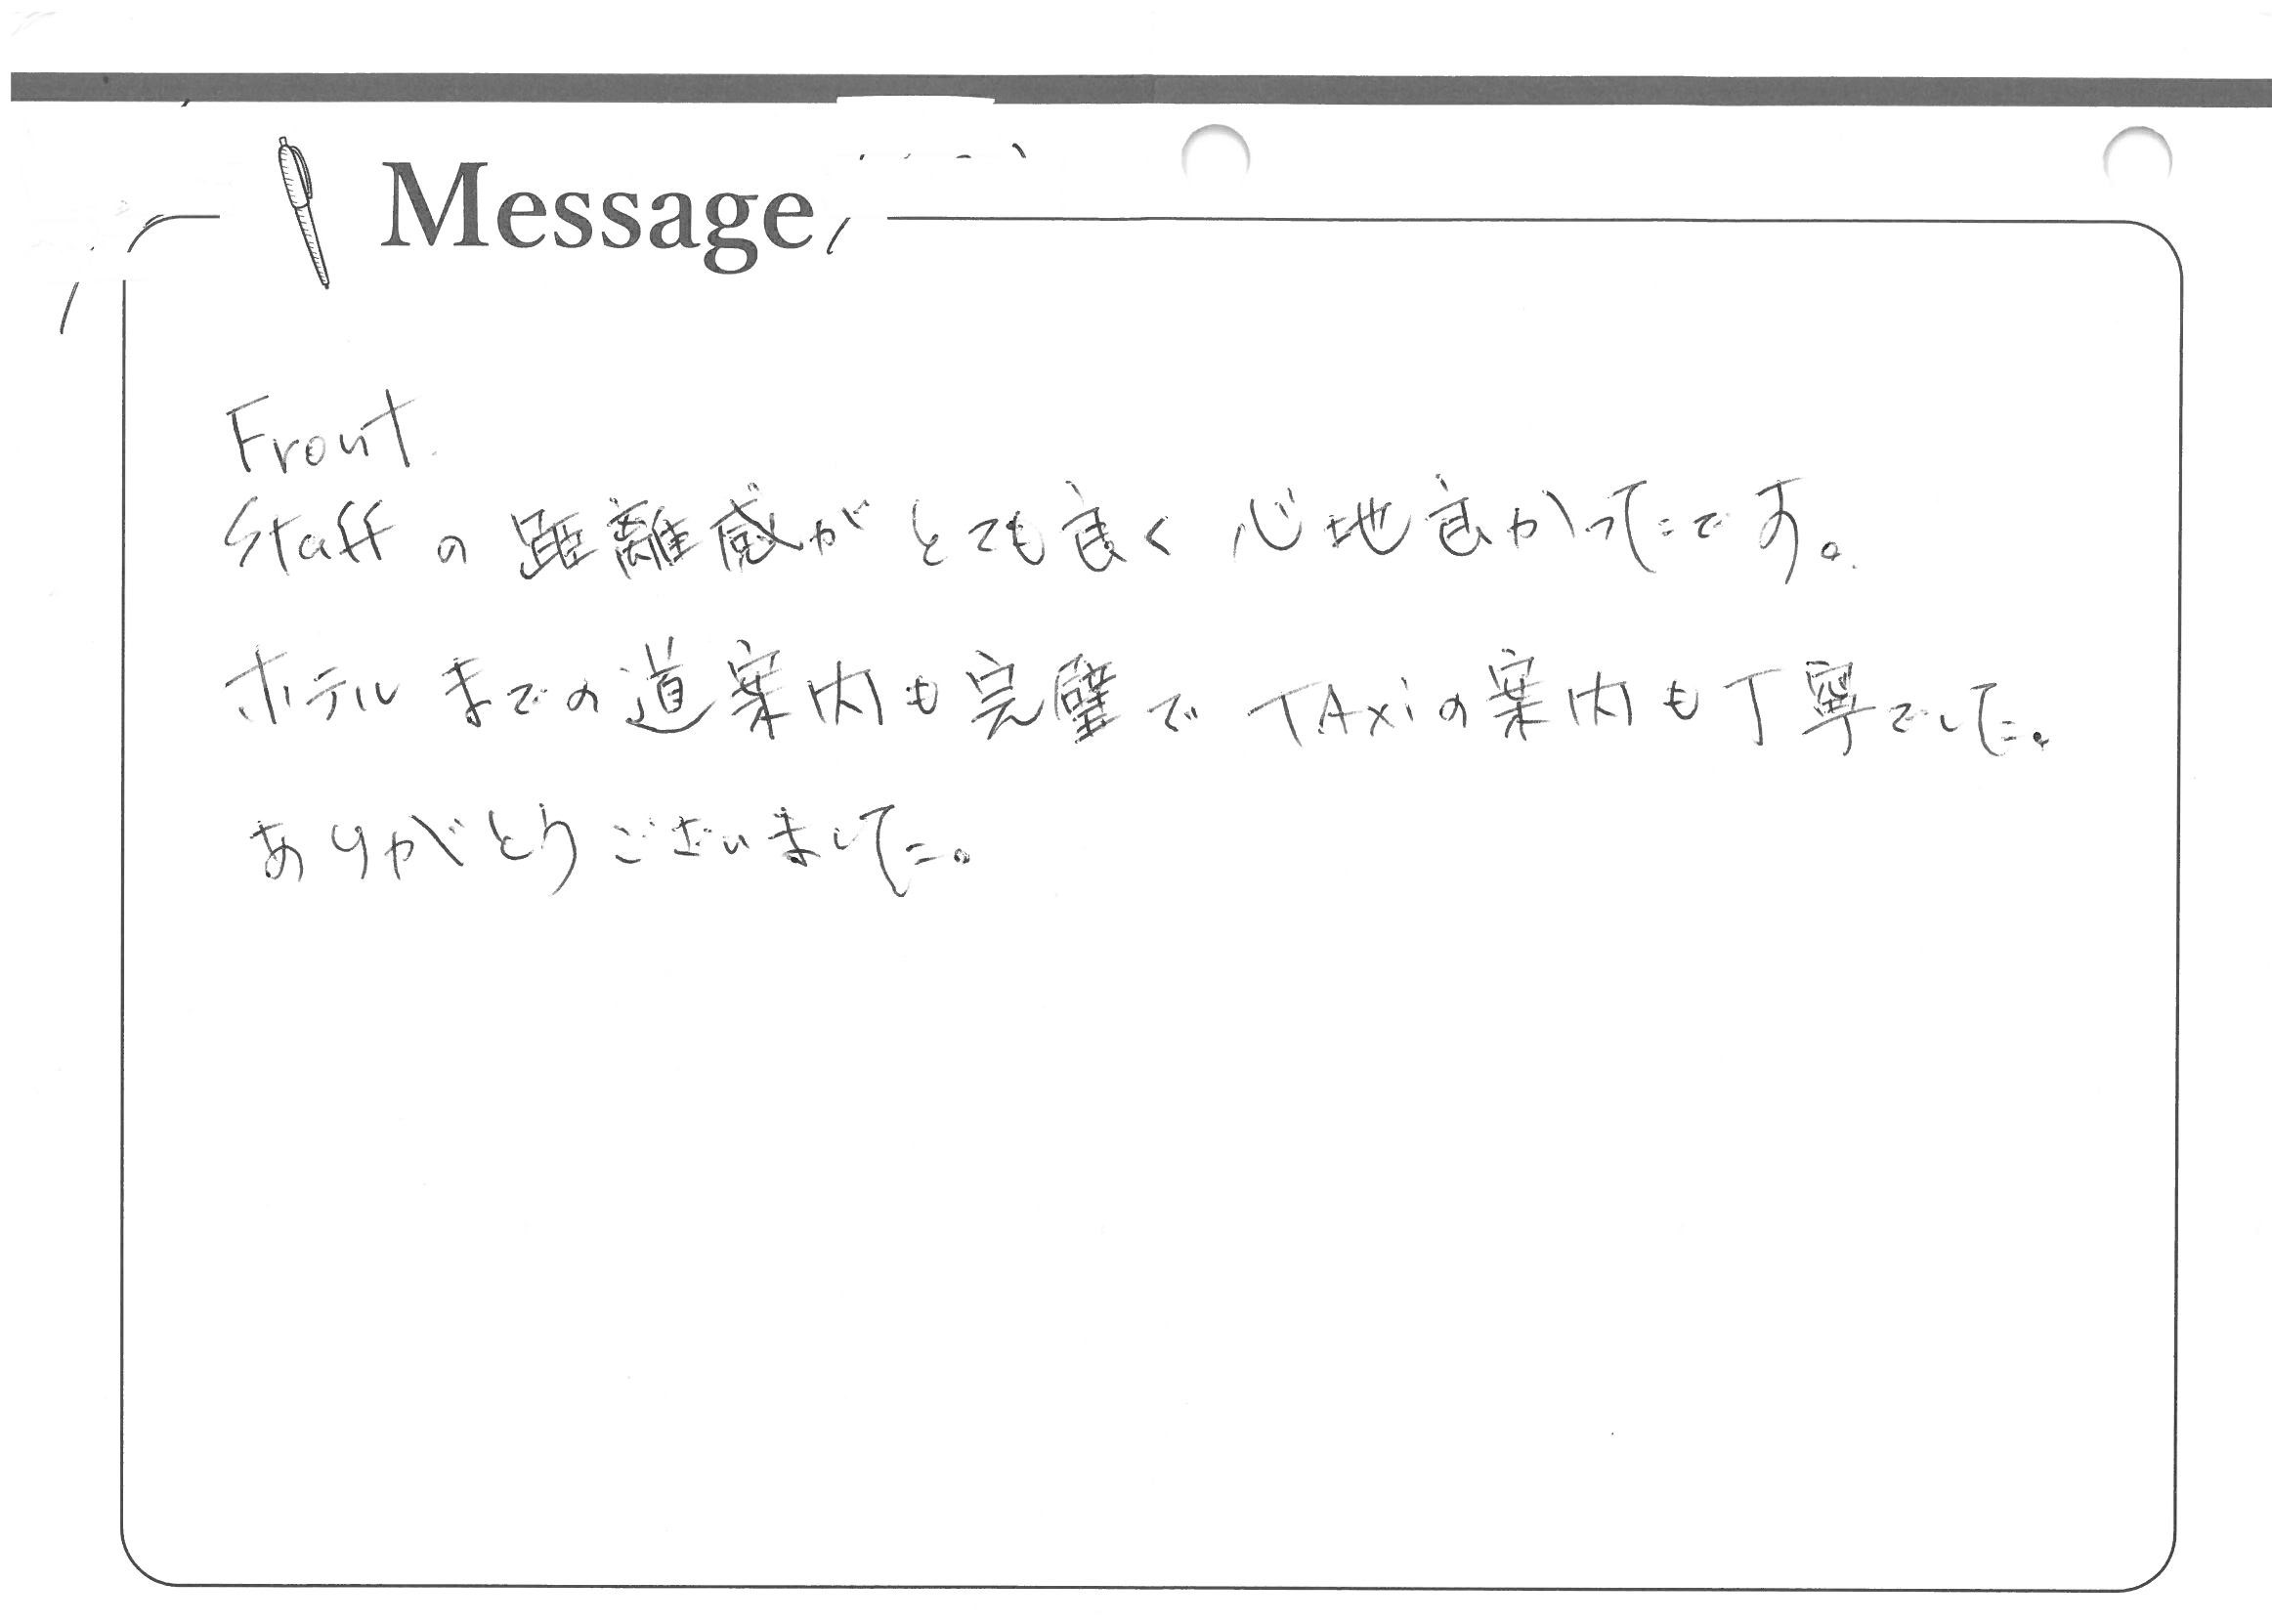 Message
Front
Staffの距離感がとても良く心地良かったです。
ホテルまでの道案内も完璧でTAXiの案内も丁寧でした。
ありがとうございました。